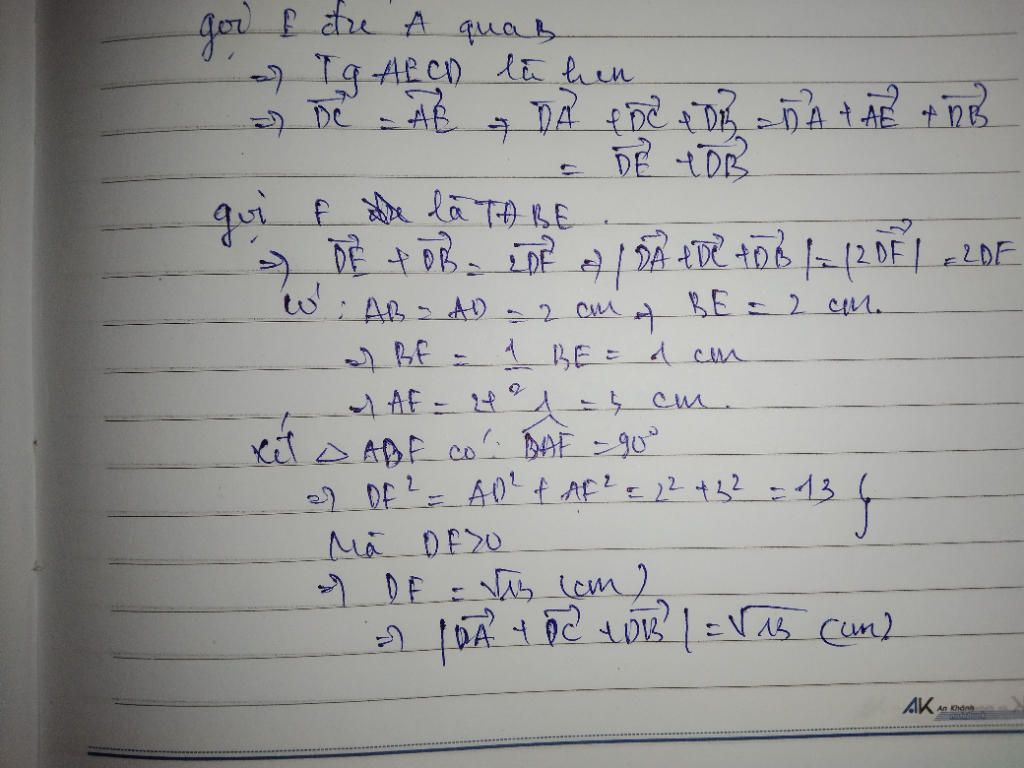 gọi E đxe A qua B
⇒ Tg AECD là hcn
⇒ \vec{DC} = \vec{AE} ⇒ \vec{DA} + \vec{DC} + \vec{DB} = \vec{DA} + \vec{AE} + \vec{DB}
= \vec{DE} + \vec{DB}
gọi F là TĐ BE.
⇒ \vec{DE} + \vec{DB} = 2\vec{DF} ⇒ |\vec{DA} + \vec{DC} + \vec{DB}| = |2\vec{DF}| = 2DF
có: AB = AD = 2 cm ⇒ BE = 2 cm.
⇒ BF = \frac{1}{2} BE = 1 cm
⇒ AF = 2+1 = 3 cm.
Xét △ ADF có: \widehat{DAF} = 90°
⇒ DF² = AD² + AF² = 2² + 3² = 13 }
Mà DF>0
⇒ DF = √13 (cm)
⇒ |\vec{DA} + \vec{DC} + \vec{DB}| = √13 (cm)
AK An Khánh